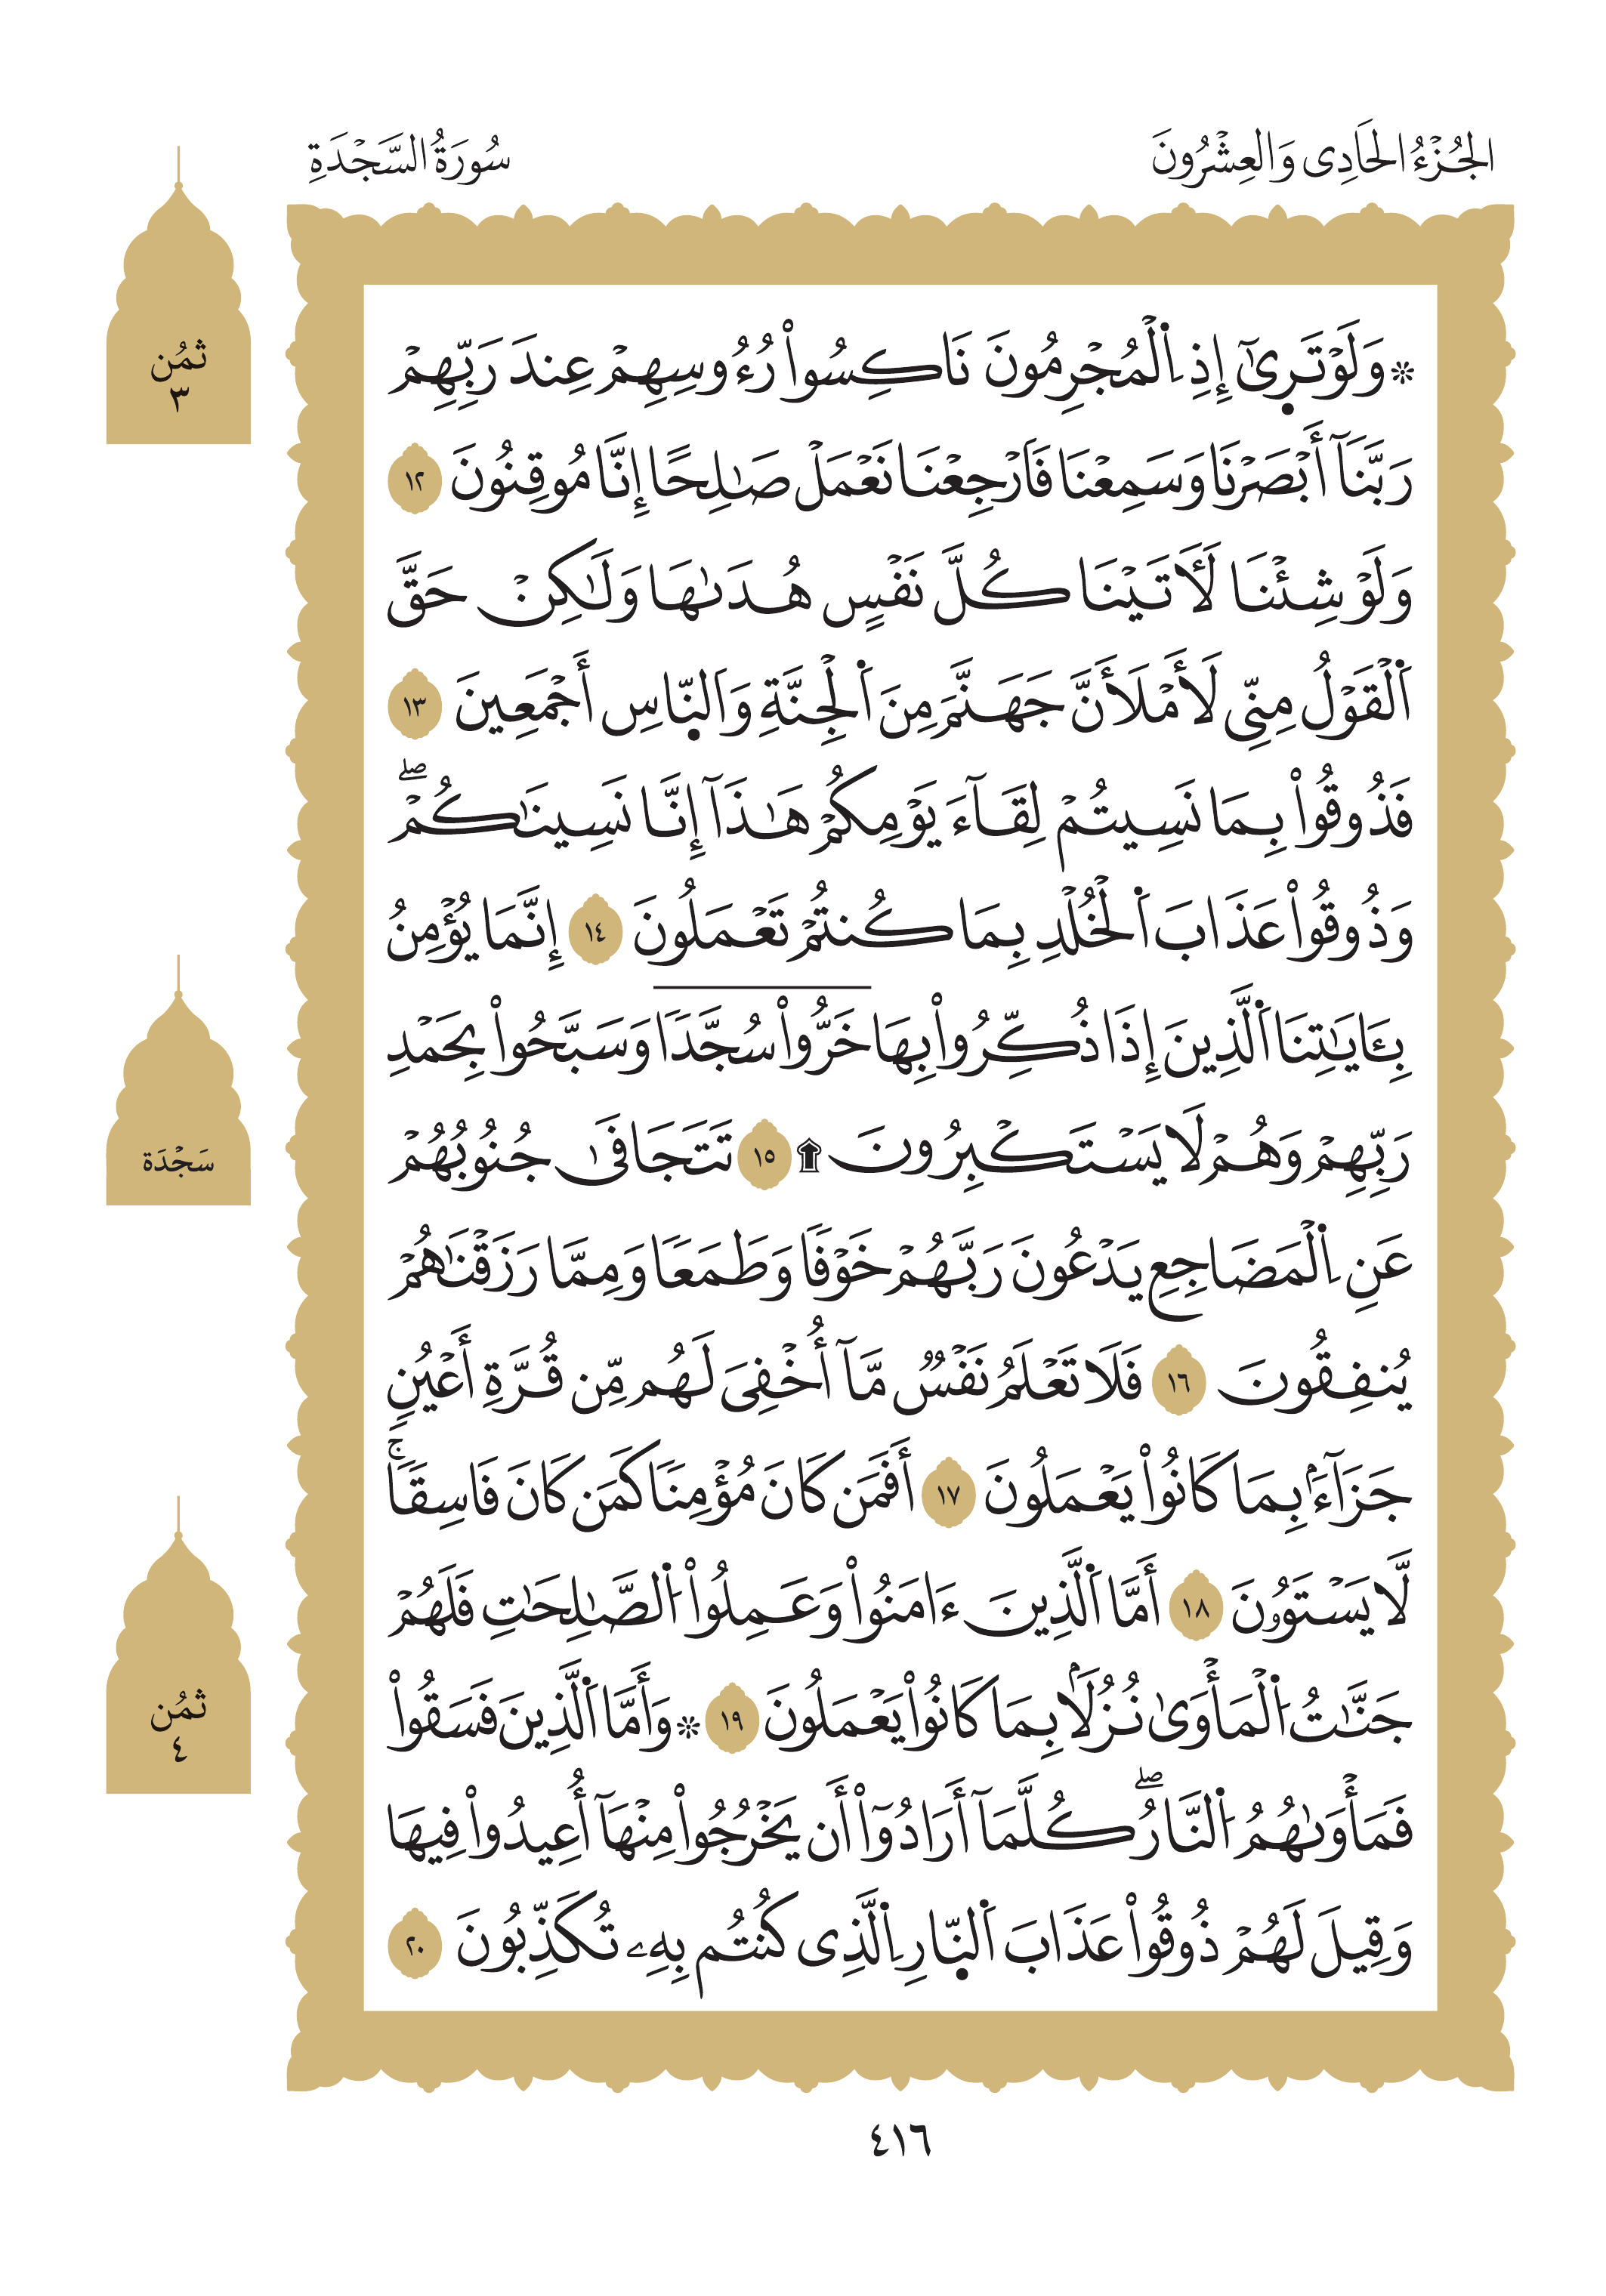 الجُزْءُ الحَادِى وَالعِشْرُونَ
سُورَةُ السَّجْدَةِ
۞ وَلَوْ تَرٜىٰٓ إِذِ اِ۬لْمُجْرِمُونَ نَاكِسُواْ رُءُوسِهِمْ عِندَ رَبِّهِمْ
رَبَّنَآ أَبْصَرْنَا وَسَمِعْنَا فَارْجِعْنَا نَعْمَلْ صَٰلِحًا إِنَّا مُوقِنُونَ ١٢
وَلَوْ شِئْنَا لَأٓتَيْنَا كُلَّ نَفْسٍ هُدَىٰهَا وَلَٰكِنْ حَقَّ
اَ۬لْقَوْلُ مِنِّى لَأَمْلَأَنَّ جَهَنَّمَ مِنَ اَ۬لْجِنَّةِ وَالنّٜاسِ أَجْمَعِينَ ١٣
فَذُوقُواْ بِمَا نَسِيتُمْ لِقَآءَ يَوْمِكُمْ هَٰذَآ إِنَّا نَسِينَٰكُمْۖ
وَذُوقُواْ عَذَابَ اَ۬لْخُلْدِ بِمَا كُنتُمْ تَعْمَلُونَ ١٤ إِنَّمَا يُؤْمِنُ
بِـَٔايَٰتِنَا اَ۬لَّذِينَ إِذَا ذُكِّرُواْ بِهَا خَرُّواْ سُجَّدًا وَسَبَّحُواْ بِحَمْدِ
رَبِّهِمْ وَهُمْ لَا يَسْتَكْبِرُونَ ۩ ١٥ تَتَجَافَىٰ جُنُوبُهُمْ
عَنِ اِ۬لْمَضَاجِعِ يَدْعُونَ رَبَّهُمْ خَوْفًا وَطَمَعًا وَمِمَّا رَزَقْنَٰهُمْ
يُنفِقُونَ ١٦ فَلَا تَعْلَمُ نَفْسٌ مَّآ أُخْفِىَ لَهُم مِّن قُرَّةِ أَعْيُنٍ
جَزَآءَۢ بِمَا كَانُواْ يَعْمَلُونَ ١٧ أَفَمَن كَانَ مُؤْمِنًا كَمَن كَانَ فَاسِقًاۚ
لَّا يَسْتَوُۥنَ ١٨ أَمَّا اَ۬لَّذِينَ ءَامَنُواْ وَعَمِلُواْ اُ۬لصَّٰلِحَٰتِ فَلَهُمْ
جَنَّٰتُ اُ۬لْمَأْوَىٰ نُزُلَۢا بِمَا كَانُواْ يَعْمَلُونَ ١٩ ۞ وَأَمَّا اَ۬لَّذِينَ فَسَقُواْ
فَمَأْوَىٰهُمُ اُ۬لنَّارُۖ كُلَّمَآ أَرَادُوٓاْ أَن يَخْرُجُواْ مِنْهَآ أُعِيدُواْ فِيهَا
وَقِيلَ لَهُمْ ذُوقُواْ عَذَابَ اَ۬لنّٜارِ اِ۬لَّذِى كُنتُم بِهِۦ تُكَذِّبُونَ ٢٠
ثمُن
٣
سَجْدَة
ثمُن
٤
٤١٦